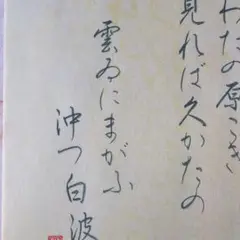 わたの原こぎ
見れば久かたの
雲ゐにまがふ
沖つ白波